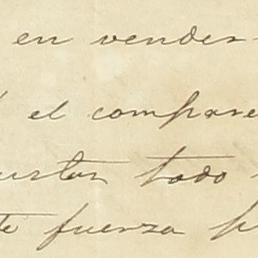 en vender
el compare
ustar todo
te fuerza p